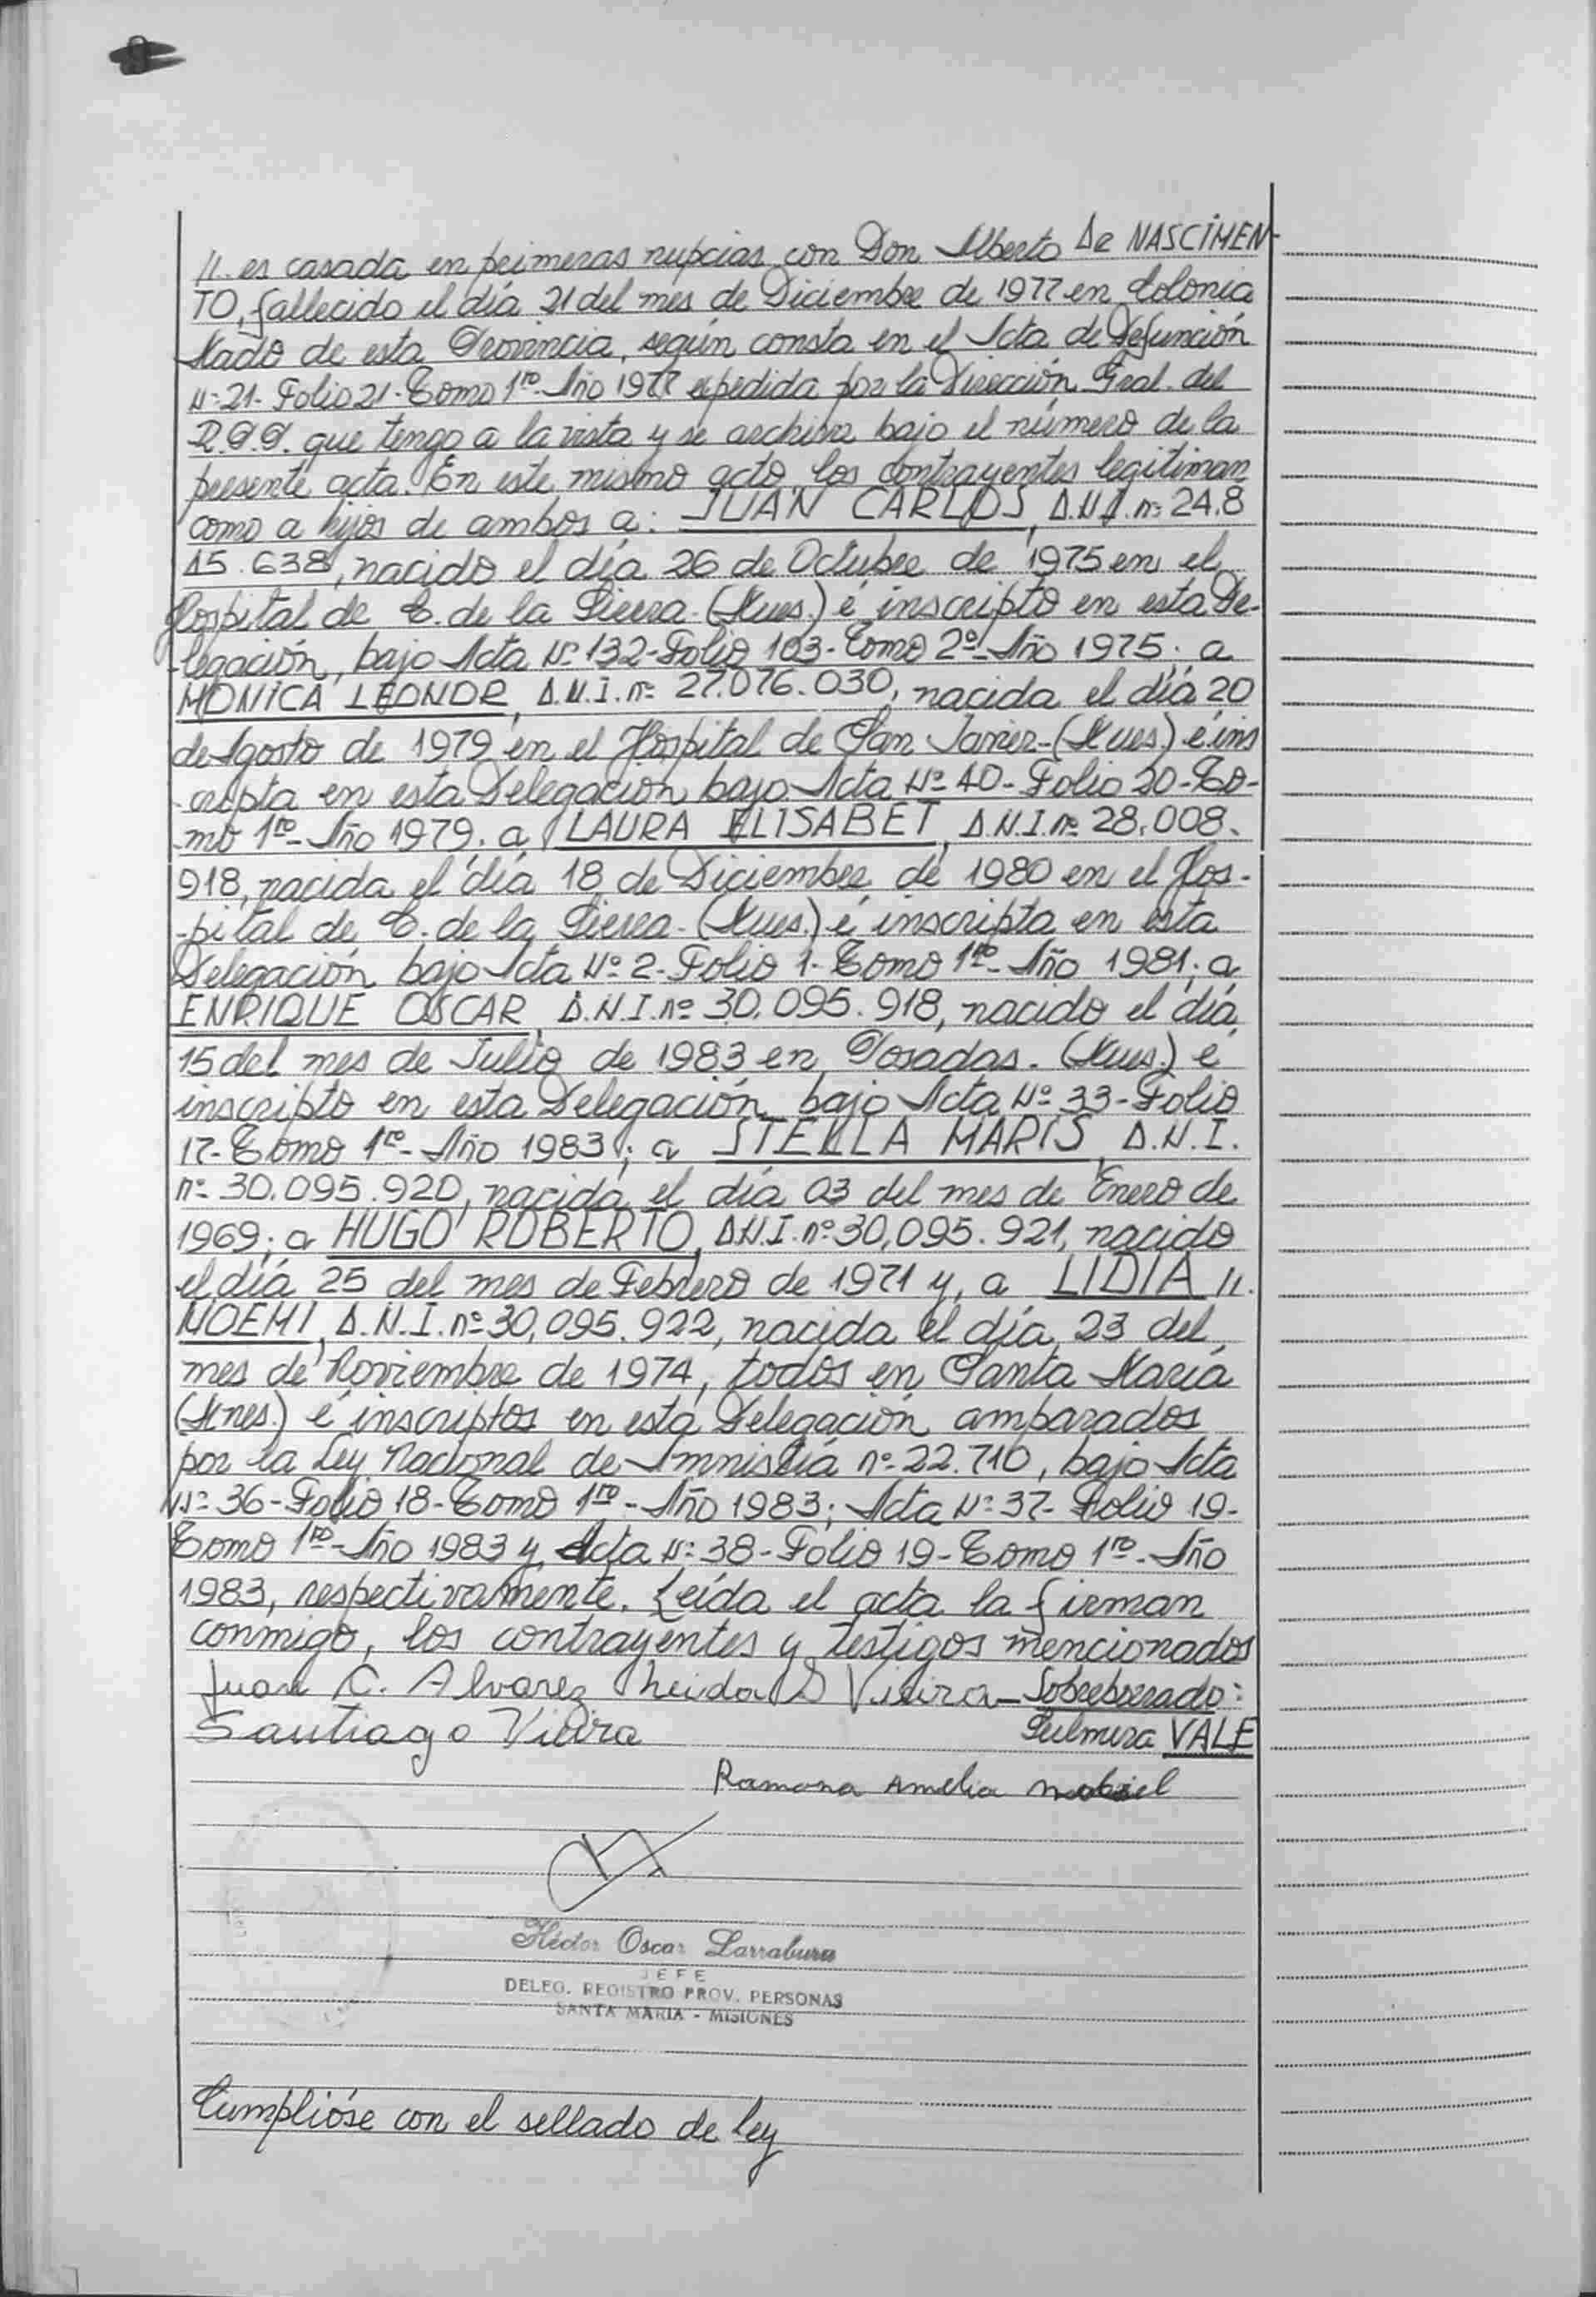 //. es casada en primeras nupcias con Don Alberto De NASCIMEN-
TO, fallecido el día 21 del mes de Diciembre de 1977 en Colonia
de esta Provincia, según consta en el Acta de Defunción
Nº 21- Folio 21- Tomo 1ro- Año 1977 expedida por la Dirección Gral. del
R.P.P. que tengo a la vista y se archiva bajo el número de la
presente acta. En este mismo acto los contrayentes legitiman
como a hijos de ambos a: JUAN CARLOS, D.N.I. nº 24.8
15.638, nacido el día 26 de Octubre de 1975 en el
Hospital de C. de la Sierra- (Mnes.) é inscripto en esta De-
legación, bajo Acta Nº 132- Folio 103- Tomo 2º- Año 1975; a
MONICA LEONOR, D.N.I. nº 27.076.030, nacida el día 20
de Agosto de 1979 en el Hospital de San Javier- (Mnes) é ins
cripta en esta Delegación bajo Acta Nº 40- Folio 20- To-
mo 1ro- Año 1979; a LAURA ELISABET, D.N.I. nº 28.008.
918, nacida el día 18 de Diciembre de 1980 en el Hos-
pital de C. de la Sierra- (Mnes.) é inscripta en esta
Delegación bajo Acta Nº 2- Folio 1- Tomo 1ro- Año 1981; a
ENRIQUE OSCAR, D.N.I. nº 30.095.918, nacido el día
15 del mes de Julio de 1983 en Posadas- (Mnes.) é
inscripto en esta Delegación, bajo Acta Nº 33- Folio
17- Tomo 1ro- Año 1983; a STELLA MARIS, D.N.I.
nº 30.095.920, nacida el día 03 del mes de Enero de
1969; a HUGO ROBERTO, D.N.I. nº 30,095.921, nacido
el día 25 del mes de Febrero de 1971 y, a LIDIA //.
NOEMI, D.N.I. nº 30,095.922, nacida el día 23 del
mes de Noviembre de 1974, todos en Santa María
(Mnes.) é inscriptos en esta Delegación amparados
por la Ley Nacional de Amnistía nº 22.710, bajo Acta
Nº 36- Folio 18- Tomo 1ro- Año 1983; Acta Nº 37- Folio 19-
Tomo 1ro- Año 1983 y, Acta Nº 38- Folio 19- Tomo 1ro- Año
1983, respectivamente. Leída el acta la firman
conmigo, los contrayentes y testigos mencionados
Juan C. Alvarez Neida D Vieira- Sobreborrado:
Santiago Vieira Pulmira VALE
Ramona Amelia
Héctor Oscar Larraburu
JEFE
DELEG. REGISTRO PROV. PERSONAS
SANTA MARIA - MISIONES
Cumplióse con el sellado de ley